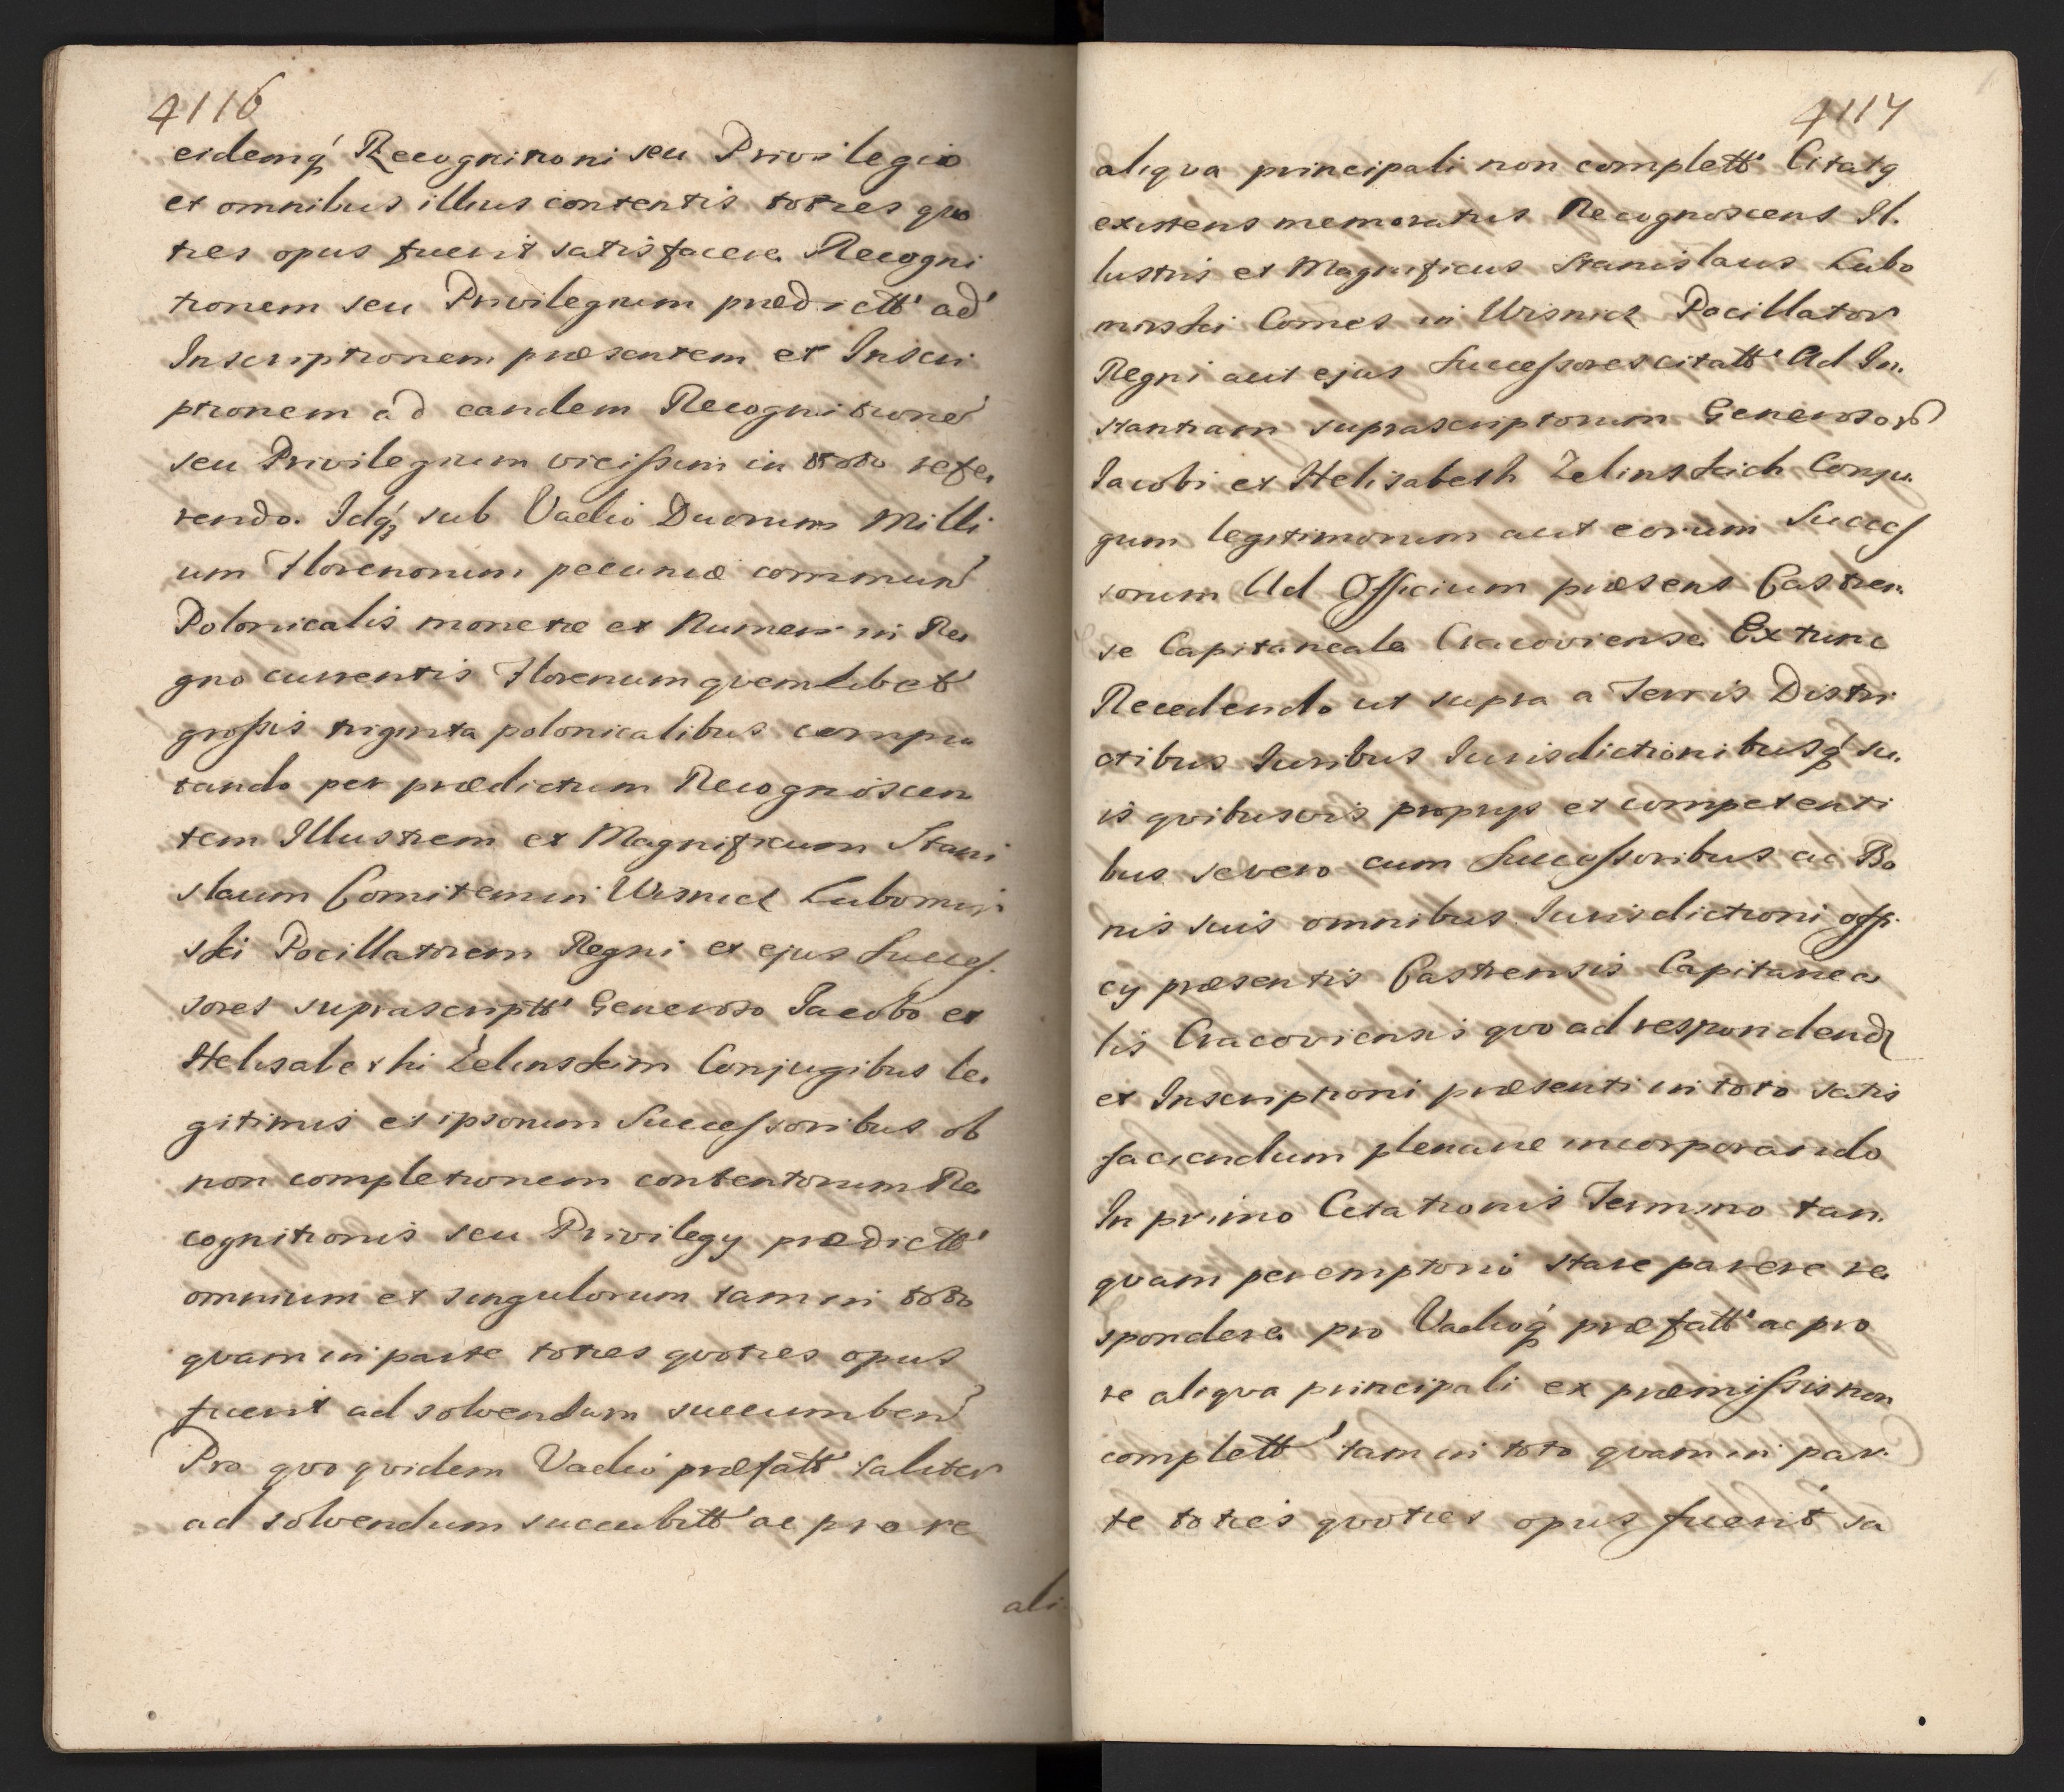 4116
eidemq́ Recognitioni seu Privilegio
et omnibus illius contentis toties quo
ties opus fuerit satisfacere Recogni
tionem seu Privilegium prædictt' ad
Inscriptionem præsentem et Inscri
ptionem ad eandem Recognitione
seu Privilegium vicissim in toto refe,
rendo. Idq́ sub Vadio Duorum Milli
um Florenorum pecuniæ commun
Polonicalis monetæ et Numeri in Re,
gno currentis Florenum qvemlibet
grossis triginta polonicalibus compu
tando per prædictum Recognoscen
tem Illustrem et Magnificum Stani
slaum Comitem in Wisnicz Lubomir
ski Pocillatorem Regni et ejus Succes.
sores suprascriptt' Generoso Iacobo et
Helisabethi Żelinskim Conjugibus le,
gitimis et ipsorum Successoribus ob
non completionem contentorum Re,
cognitionis seu Privilegy prædictt'
omnium et singulorum tam in toto
qvam in parte toties qvoties opus
fuerit ad solvendum succumben
Pro qvo qvidem Vadio præfatt' taliter
ad solvendum succubitt' ac pro re
ali
4117
aliqva principali non complett' Citatq
existens memoratus Recognoscens Il.
lustris et Magnificus Stanislaus Lubo
mirski Comes in Wisnicz Pocillator
Regni aut ejus Successores citatt' Ad In.
stantiam suprascriptorum Generosor
Iacobi et Helisabeth Zelinskich Conju.
gum legitimorum aut eorum Succes
sorum Ad Officium præsens Castren.
se Capitaneale Cracoviense Ex tunc
Recedendo ut supra a Terris Distri
ctibus Iuribus Iurisdictionibusq́ su,
is qvibusvis proprys et competenti
bus se vero cum Successoribus ac Bo
nis suis omnibus Iurisdictioni offi.
cy præsentis Castrensis Capitanea
lis Cracoviensis qvo ad respondend
et Inscriptioni præsenti in toto satis
faciendum plenarie incorporando
In primo Citationis Termino tan.
qvam peremptorio stare parere re,
spondere pro Vadioq́ præfatt' ac pro
re aliqva principali ex præmissis non
complett' tam in toto qvam in par.
te toties qvoties opus fuerit sa